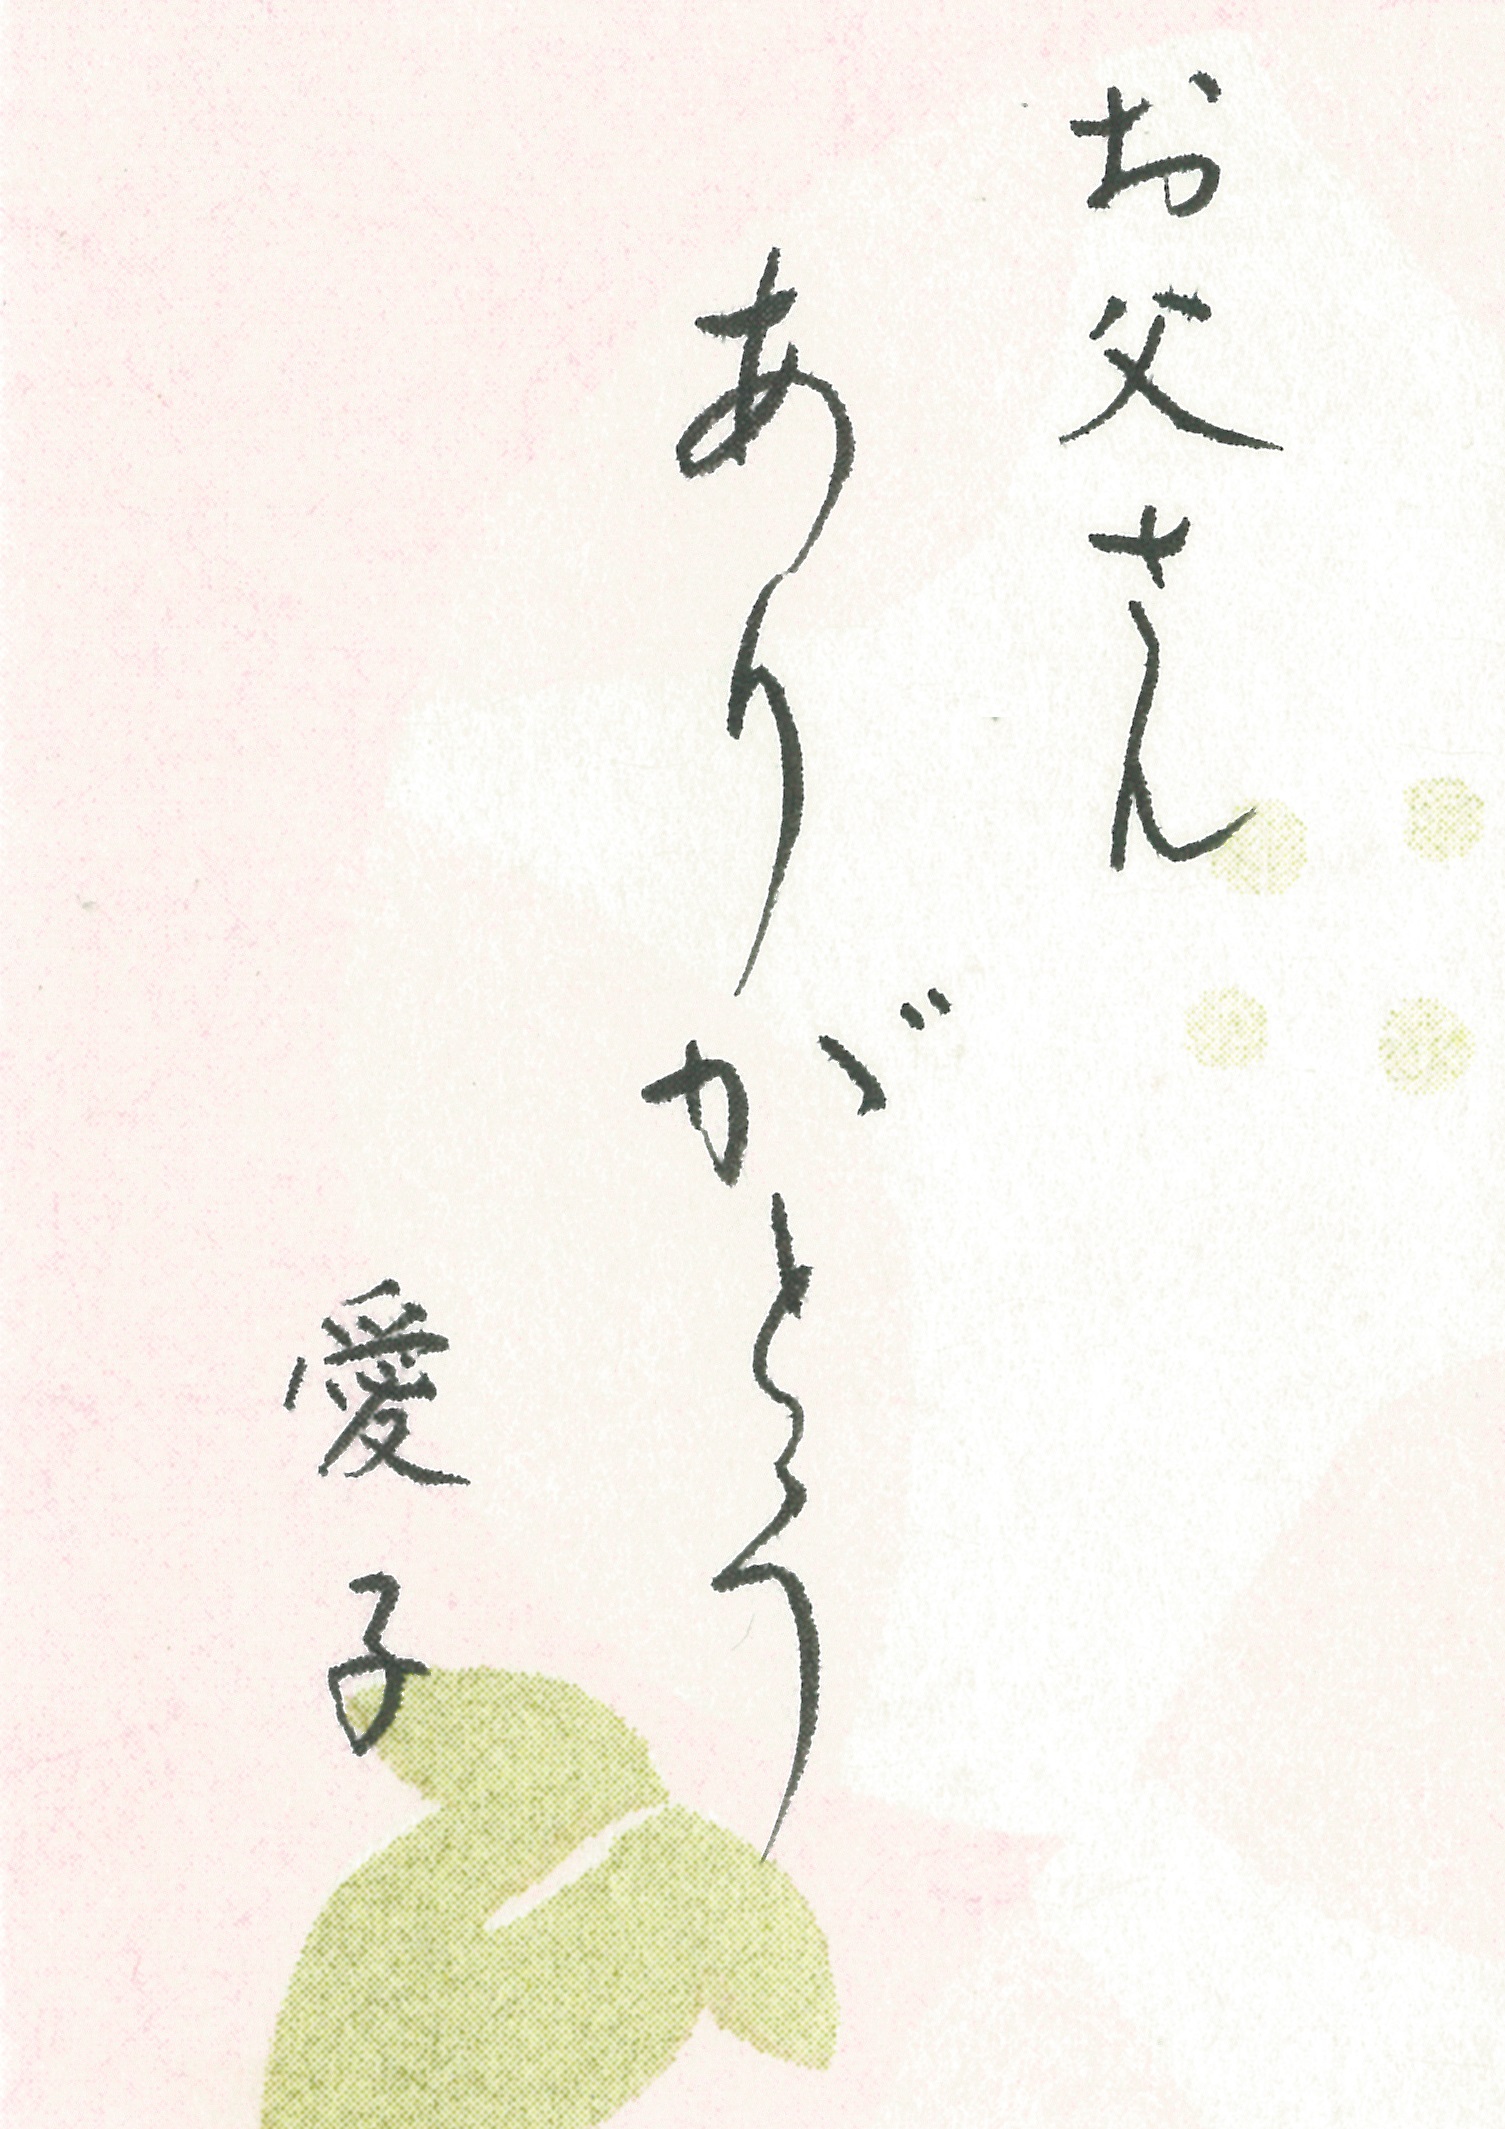 お父さん
ありがとう
愛子